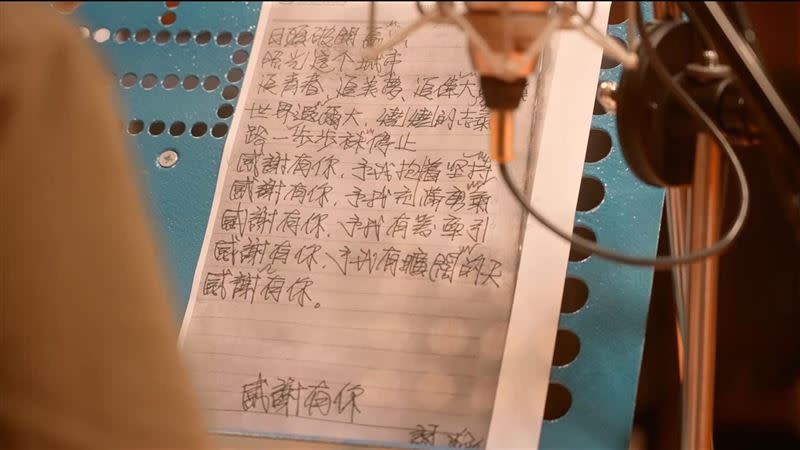 日頭破開
照光這个城市
追青春、追美夢、追偉大
世界遐爾大,的志氣
路一步步袂停止
感謝有你,予我抱著坚持
感謝有你,予我充滿勇氣
感謝有你,予我有著牽引
感謝有你,予我有曠闊的天
感謝有你。
感謝有你